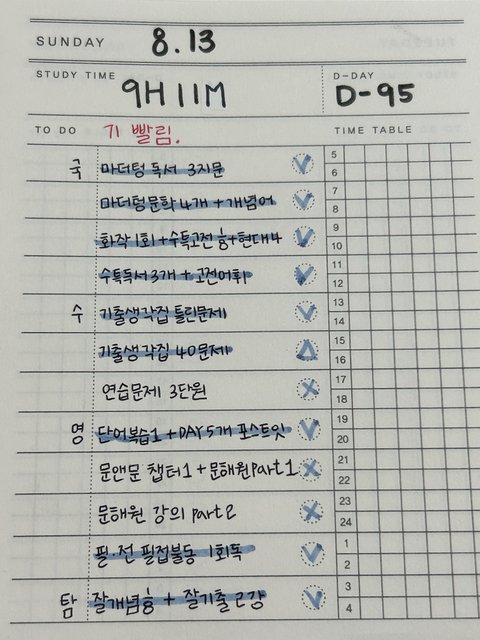 SUNDAY 8.13
STUDY TIME 9H 11M
D-DAY D-95
TO DO 기 빨림. TIME TABLE
국 마더텅 독서 3지문
마더텅문학 4개 + 개념어
화작 1회 + 수특고전 + 현대4
수특독서 3개 + 고전어휘
수 기출생각집 틀린문제
기출생각집 40문제
연습문제 3단원
영 단어복습1 + DAY5개 포스트잇
문앤문 챕터1 + 문해원 part1
문해원 강의 part2
필·전 필접불동 1회독
탐 잘개념 + 잘기출 2강
5
6
7
8
9
10
11
12
13
14
15
16
17
18
19
20
21
22
23
24
1
2
3
4